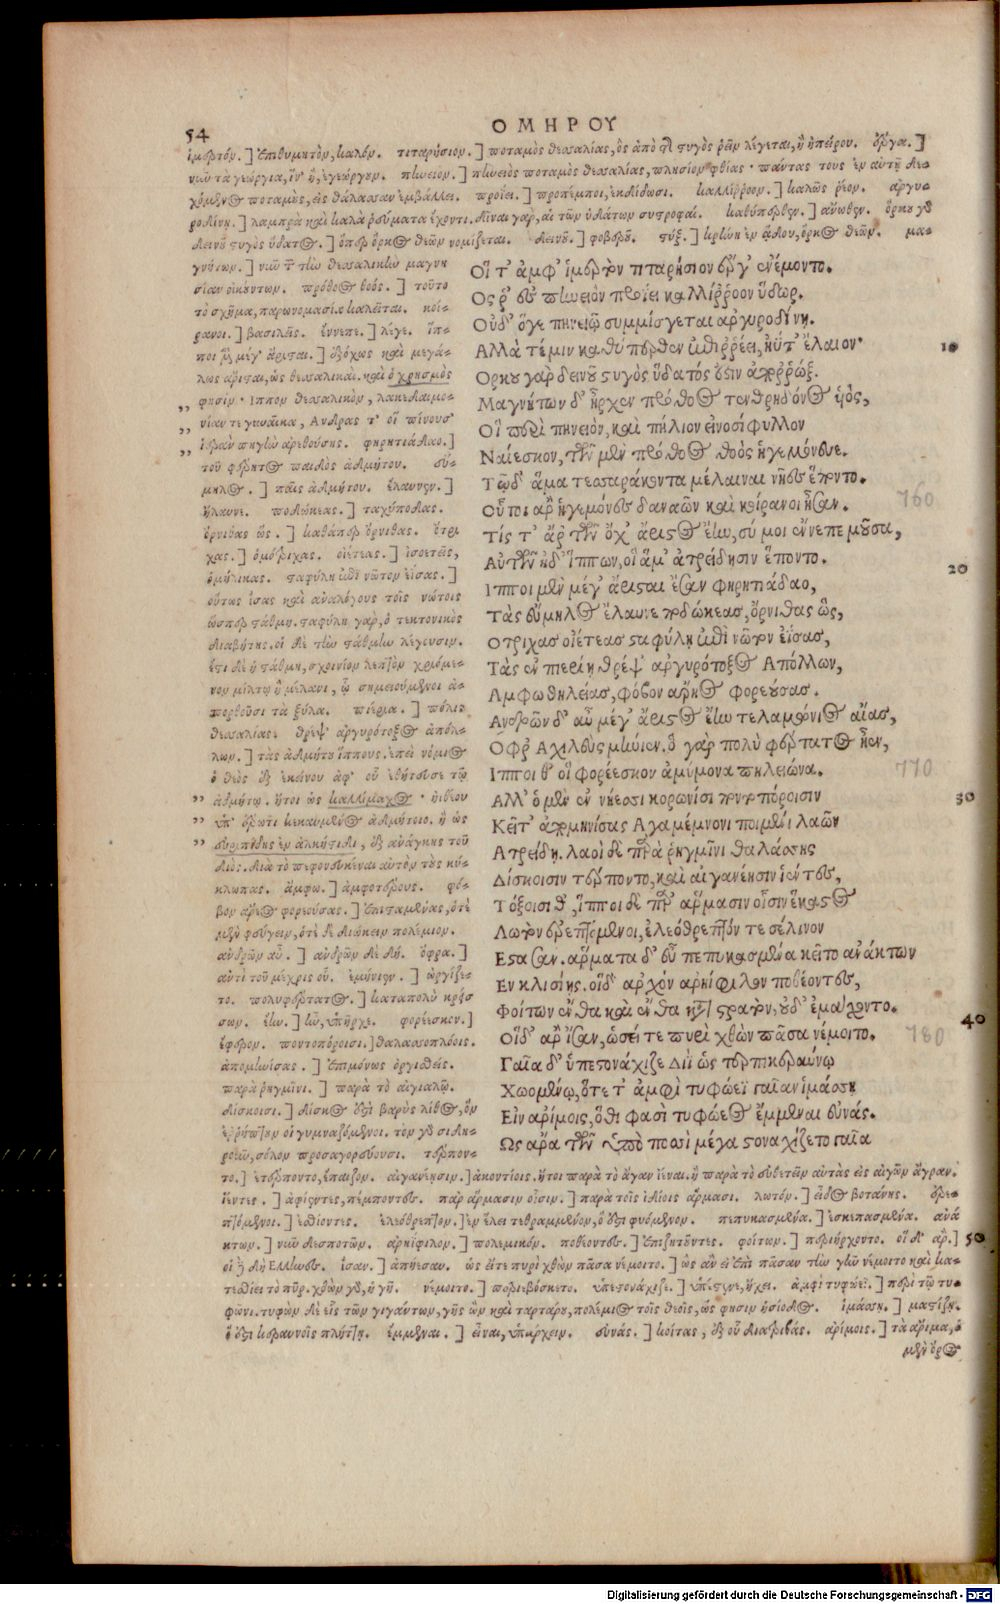 54
ΟΜΗΡΟΥ
ἱμερτόν.] ἐπιθυμητὸν, καλόν. τιταρήσιον.] ποταμὸς θεσσαλίας, ὃς ἀπὸ τῆς στυγὸς ῥεῖν λέγεται, ἢ ἠπείρου. ἔργα.]
πηνειόν.] πηνειὸς ποταμὸς θεσσαλίας, πλησίον φθίας · πάντας τοὺς ἐν αὐτῇ δε-
χόμενος ποταμοὺς, εἰς θάλασσαν ἐμβάλλει. προΐει.] προπέμποι, ἐκδίδωσι. καλλίρροον.] καλῶς ῥέον. ἀργυ-
ροδίνῃ.] λαμπρὰ καὶ καλὰ ῥεύματα ἔχοντι. δῖναι γὰρ, αἱ τῶν ὑδάτων συστροφαί. καθύπερθεν.] ἄνωθεν. ὅρκου γὰρ
δεινοῦ στυγὸς ὕδατος.] ὅπερ ὅρκος θεῶν νομίζεται. δεινοῦ.] φοβεροῦ. στύξ.] κρήνη ἐν ᾅδου, ὅρκος θεῶν. μα-
γνήτων.] νῦν τῶν τὴν θεσσαλικὴν μαγνη
σίαν οἰκούντων. πρόθοος θοός.] τοῦτο
τὸ σχῆμα, παρωνομασία καλεῖται. κοί-
ρανοι.] βασιλεῖς. ἔννεπε.] λέγε. ἵπ-
ποι μὲν μέγ' ἄρισται.] ἐξόχως καὶ μεγά-
λως ἄρισται, ὡς θεσσαλικαί. καὶ ὁ χρησμὸς
φησίν · Ἵππον θεσσαλικὸν, λακεδαιμο-
νίαν τε γυναῖκα, Ανδρας τ' οἳ πίνουσ'
ἱερὰν πηγὴν ἀρεθούσης. φηρητιάδαο.]
τοῦ φέρητος παιδὸς ἀδμήτου. εὔ-
μηλος.] παῖς ἀδμήτου. ἔλαυνεν.]
ἤλαυνε. ποδώκεας.] ταχύποδας.
ὄρνιθας ὥς.] καθάπερ ὄρνιθας. ὄτρι
χας.] ὁμότριχας. οἰέτεας.] ἰσοετεῖς,
ὁμήλικας. σταφύλῃ ἐπὶ νῶτον ἐΐσας.]
οὕτως ἴσας καὶ ἀναλόγους τοῖς νώτοις
ὥσπερ στάθμῃ. σταφύλη γὰρ, ὁ τεκτονικὸς
διαβήτης. οἱ δὲ τὴν στάθμην λέγουσιν.
ἔστι δὲ ἡ στάθμη, σχοινίον λεπτὸν χριόμε-
νον μίλτῳ ἢ μέλανι, ᾧ σημειούμενοι ἀ-
πορθοῦσι τὰ ξύλα. πιερία.] πόλις
θεσσαλίας. θρέψ' ἀργυρότοξος ἀπόλ-
λων.] τὰς ἀδμήτου ἵππους. ἐπεὶ νόμιος
ὁ θεὸς ἐξ ἐκείνου ἀφ' οὗ ἐθήτευσε τῷ
ἀδμήτῳ. ἤτοι ὡς καλλίμαχος · ἠιθέου
ὑπ' ἔρωτι κεκαυμένος ἀδμήτοιο. ἢ ὡς
εὐριπίδης ἐν ἀλκήστιδι, ἐξ ἀνάγκης τοῦ
διός. διὰ τὸ πεφονευκέναι αὐτὸν τοὺς κύ-
κλωπας. ἄμφω.] ἀμφοτέρους. φό-
βον ἄρεος φορεούσας.] ἐπισταμένας, ὁτὲ
μὲν φεύγειν, ὁτὲ δὲ διώκειν πολέμιον.
ἀνδρῶν αὖ.] ἀνδρῶν δὲ δή. ὄφρα.]
ἀντὶ τοῦ μέχρις οὗ. ἐμήνιεν.] ὠργίζε-
το. πολυφέρτατος.] καταπολὺ κρείσ
σων. ἔην.] ἦν, ὑπῆρχε. φορέεσκον.]
ἔφερον. ποντοπόροισι.] θαλασσοπλόοις.
ἀπομηνίσας.] ἐπιμόνως ὀργισθείς.
παρὰ ῥηγμῖνι.] παρὰ τὸ αἰγιαλῷ.
δίσκοισι.] δίσκος ἐστὶ βαρὺς λίθος, ὃν
ἔρριπτον οἱ γυμναζόμενοι. τὸν γὰρ σιδη-
ροῦν, σόλον προσαγορεύουσι. τέρπον-
το.] ἐτέρποντο, ἔπαιζον. αἰγανέῃσιν.] ἀκοντίοις. ἤτοι παρὰ τὸ ἄγαν ἰέναι. ἢ παρὰ τὸ συνθετεῖν αὐτὰς εἰς αἰγῶν ἄγραν.
ἱέντες.] ἀφίεντες, πέμποντες. παρ' ἅρμασιν οἷσιν.] παρὰ τοῖς ἰδίοις ἅρμασι. λωτόν.] εἶδος βοτάνης. ἐρε-
πτόμενοι.] ἐσθίοντες. ἐλεόθρεπτον.] ἐν ἕλει τεθραμμένον, ὅ ἐστι φυόμενον. πεπυκασμένα.] ἐσκεπασμένα. ἀνά
κτων.] νῦν δεσποτῶν. ἀρηΐφιλον.] πολεμικόν. ποθέοντες.] ἐπιζητοῦντες. φοίτων.] περιήρχοντο. οἱ δ' ἄρ.]
οἱ δὲ δὴ Ελληνες. ἴσαν.] ἀπῄεσαν. ὡς εἴτε πυρὶ χθὼν πᾶσα νέμοιτο.] ὡς ἂν εἰ ἐπὶ πᾶσαν τὴν γῆν νέμοιτο καὶ κα-
τεσθίει τὸ πῦρ. χθὼν γὰρ, ἡ γῆ. νέμοιτο.] περιεβόσκετο. ὑπεστονάχιζε.] ὑπέστενε, ἤχει. ἀμφὶ τυφωέϊ.] περὶ τῷ τυ-
φῶνι. τυφὼν δὲ εἷς τῶν γιγάντων, γῆς ὢν καὶ ταρτάρου, πολέμιος τοῖς θεοῖς, ὥς φησιν ἡσίοδος. ἱμάσσῃ.] μαστίζῃ.
ὅ ἐστι κεραυνοῖς πλήττῃ. ἔμμεναι.] εἶναι, ὑπάρχειν. εὐνάς.] κοίτας, ἐξ οὗ διατριβάς. ἀρίμοις.] τὰ ἄριμα, ὁ
μὲν ὄρος
Οἵ τ' ἀμφ' ἱμερτὸν τιταρήσιον ἔργ' ἐνέμοντο.
Ος ῥ' ἐς πηνειὸν προΐει καλλίρροον ὕδωρ.
Οὐδ' ὅγε πηνειῷ συμμίσγεται ἀργυροδίνῃ.
Αλλὰ τέ μιν καθύπερθεν ἐπιρρέει, ἠΰτ' ἔλαιον· 10
Ορκου γὰρ δεινοῦ στυγὸς ὕδατός ἐστιν ἀπορρώξ.
Μαγνήτων δ' ἦρχεν πρόθοος τενθρηδόνος υἱὸς,
Οἳ περὶ πηνειὸν, καὶ πήλιον εἰνοσίφυλλον
Ναίεσκον, τῶν μὲν πρόθοος θοὸς ἡγεμόνευε.
Τῷ δ' ἅμα τεσσαράκοντα μέλαιναι νῆες ἕποντο.
Οὗτοι ἄρ' ἡγεμόνες δαναῶν καὶ κοίρανοι ἦσαν. 760
Τίς τ' ἄρ τῶν ὄχ' ἄριστος ἔην, σύ μοι ἔννεπε μοῦσα,
Αὐτῶν ἠδ' ἵππων, οἳ ἅμ' ἀτρείδῃσιν ἕποντο. 20
Ιπποι μὲν μέγ' ἄρισται ἔσαν φηρητιάδαο,
Τὰς εὔμηλος ἔλαυνε ποδώκεας, ὄρνιθας ὣς,
Οτριχας οἰέτεας σταφύλῃ ἐπὶ νῶτον ἐΐσας,
Τὰς ἐν πιερίῃ θρέψ' ἀργυρότοξος Απόλλων,
Αμφω θηλείας, φόβον ἄρηος φορεούσας.
Ανδρῶν δ' αὖ μέγ' ἄριστος ἔην τελαμώνιος αἴας,
Οφρ' Αχιλεὺς μήνιεν, ὃ γὰρ πολὺ φέρτατος ἦεν,
Ιπποι θ' οἳ φορέεσκον ἀμύμονα πηλείωνα. 770
Αλλ' ὁ μὲν ἐν νήεσσι κορωνίσι ποντοπόροισιν 30
Κεῖτ' ἀπομηνίσας Αγαμέμνονι ποιμένι λαῶν
Ατρείδῃ. λαοὶ δὲ παρὰ ῥηγμῖνι θαλάσσης
Δίσκοισιν τέρποντο, καὶ αἰγανέῃσιν ἱέντες,
Τόξοισί θ', ἵπποι δὲ παρ' ἅρμασιν οἷσιν ἕκαστος
Λωτὸν ἐρεπτόμενοι, ἐλεόθρεπτόν τε σέλινον
Εστασαν. ἅρματα δ' εὖ πεπυκασμένα κεῖτο ἀνάκτων
Εν κλισίῃς. οἳ δ' ἀρχὸν ἀρηίφιλον ποθέοντες,
Φοίτων ἔνθα καὶ ἔνθα κατὰ στρατὸν, οὐδ' ἐμάχοντο.
Οἳ δ' ἄρ' ἴσαν, ὡσεί τε πυρὶ χθὼν πᾶσα νέμοιτο. 40 780
Γαῖα δ' ὑπεστονάχιζε Διῒ ὣς τερπικεραύνῳ
Χωομένῳ, ὅτε τ' ἀμφὶ τυφωέϊ γαῖαν ἱμάσσῃ
Ειν ἀρίμοις, ὅθι φασὶ τυφωέος ἔμμεναι εὐνάς.
Ως ἄρα τῶν ὑπὸ ποσσὶ μέγα στοναχίζετο γαῖα
50
Digitalisierung gefördert durch die Deutsche Forschungsgemeinschaft - DFG